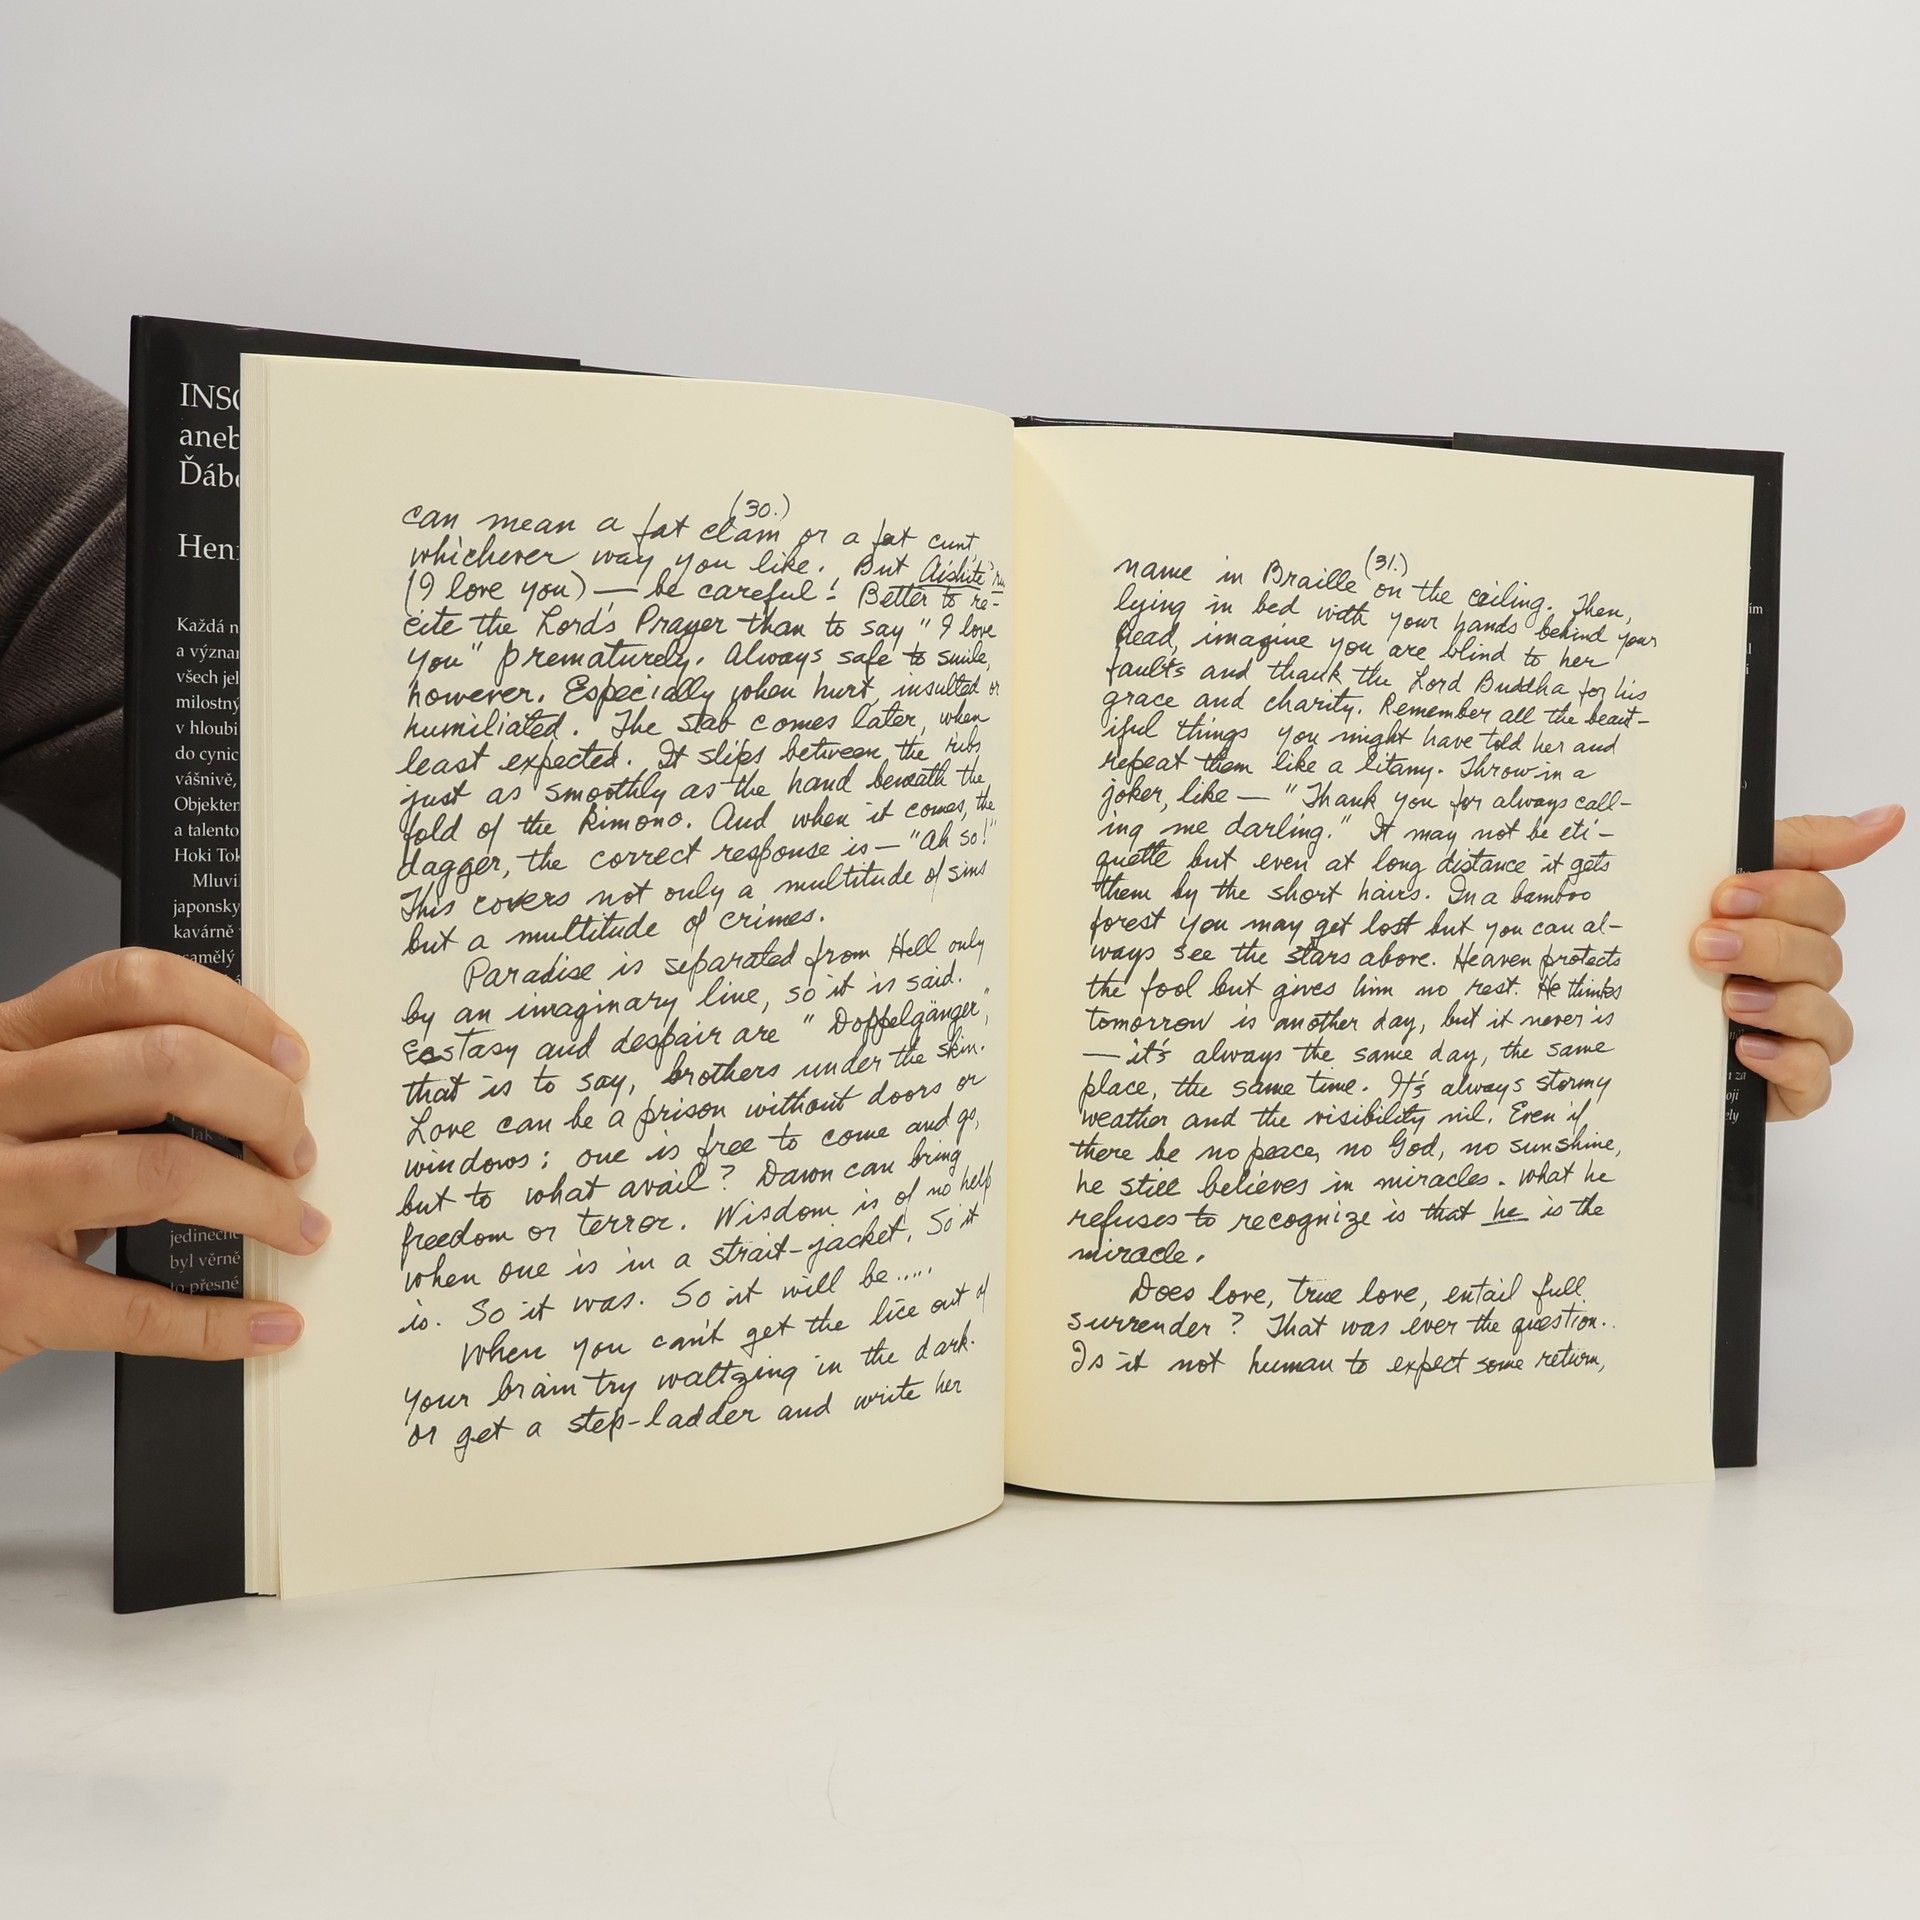 INSO
aneb
Ďábe
Hen
Každá n
a význa
všech jel
milostný
v hloubi
do cynic
vášnivě,
Objekte
a talento
Hoki Tok
Mluvi
japonsky
kavárně
samělý
jedinečné
byl věrně
to přesné
(30.)
can mean a fat clam or a fat cunt,
whichever way you like. But Aishite'ru
(I love you) — be careful! Better to re-
cite the Lord's Prayer than to say "I love
you" prematurely. Always safe to smile,
however. Especially when hurt, insulted or
humiliated. The stab comes later, when
least expected. It slips between the ribs
just as smoothly as the hand beneath the
fold of the Kimono. And when it comes, the
dagger, the correct response is — "Ah so!"
This covers not only a multitude of sins
but a multitude of crimes.
Paradise is separated from Hell only
by an imaginary line, so it is said.
Ecstasy and despair are "Doppelgänger",
that is to say, brothers under the skin.
Love can be a prison without doors or
windows; one is free to come and go,
but to what avail? Dawn can bring
freedom or terror. Wisdom is of no help
when one is in a strait-jacket. So it
is. So it was. So it will be.....
When you can't get the lice out of
your brain try waltzing in the dark.
or get a step-ladder and write her
(31.)
name in Braille on the ceiling. Then,
lying in bed with your hands behind your
head, imagine you are blind to her
faults and thank the Lord Buddha for his
grace and charity. Remember all the beaut-
iful things you might have told her and
repeat them like a litany. Throw in a
joker, like — "Thank you for always call-
ing me darling." It may not be eti-
quette but even at long distance it gets
them by the short hairs. In a bamboo
forest you may get lost but you can al-
ways see the stars above. Heaven protects
the fool but gives him no rest. He thinks
tomorrow is another day, but it never is
— it's always the same day, the same
place, the same time. It's always stormy
weather and the visibility nil. Even if
there be no peace, no God, no sunshine,
he still believes in miracles. What he
refuses to recognize is that he is the
miracle.
Does love, true love, entail full
surrender? That was ever the question.
Is it not human to expect some return,